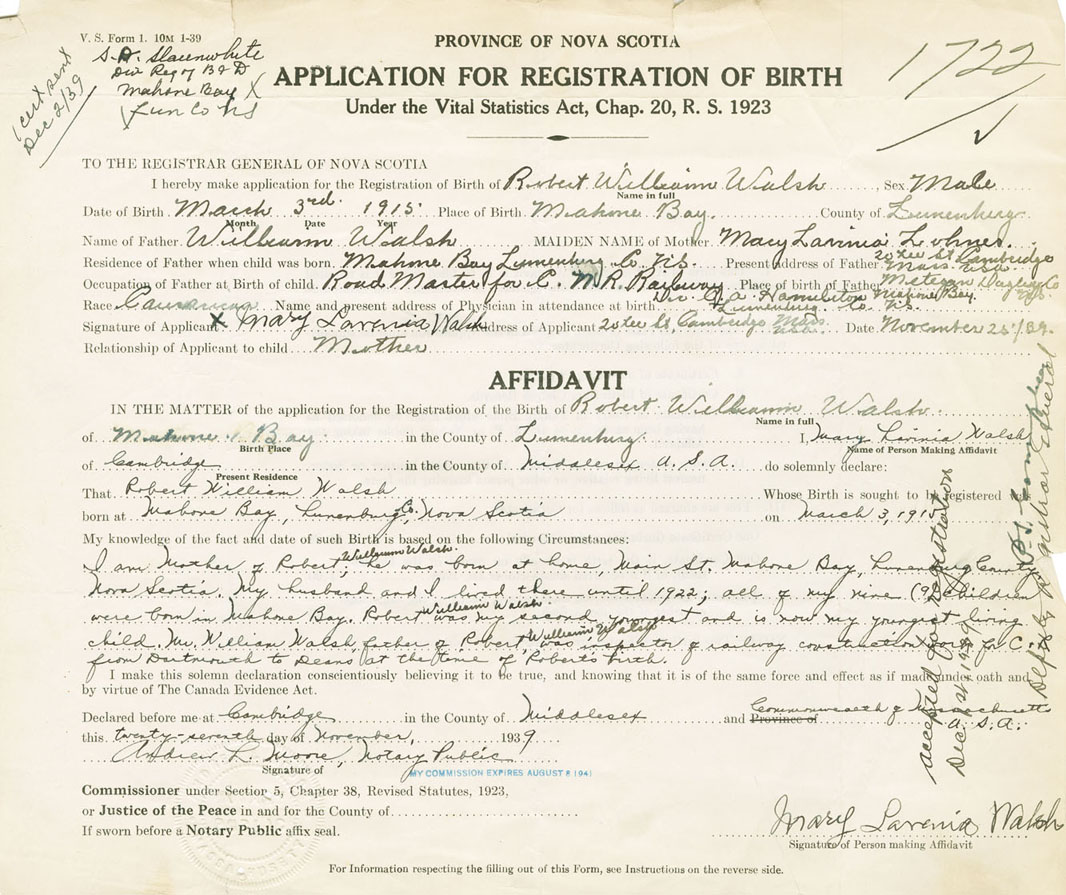 V. S. Form 1. 10M 1-39
Div Reg of B & D
Mahone Bay X
Lun Co NS
(cert sent
Dec 2/39
1722
PROVINCE OF NOVA SCOTIA
APPLICATION FOR REGISTRATION OF BIRTH
Under the Vital Statistics Act, Chap. 20, R. S. 1923
TO THE REGISTRAR GENERAL OF NOVA SCOTIA
I hereby make application for the Registration of Birth of Robert William Walsh, Sex Male
Name in full
Date of Birth March 3rd. 1915 Place of Birth Mahone Bay. County of Lunenburg.
Month Date Year
Name of Father William Walsh MAIDEN NAME of Mother Mary Lavinia Lohnes.
Residence of Father when child was born. Mahone Bay Lunenburg Co. N.S. Present address of Father 20 Lee St Cambridge Mass. U.S.A.
Occupation of Father at Birth of child. Road Master for C. N. R. Railway Place of birth of Father
Race Name and present address of Physician in attendance at birth Dr. C. A. Hamilton Mahone Bay. Lunenburg Co. N.S.
Signature of Applicant X Mary Lavenia Walsh Address of Applicant 20 Lee St Cambridge Mass Date November 25/39.
Relationship of Applicant to child Mother
AFFIDAVIT
IN THE MATTER of the application for the Registration of the Birth of Robert William Walsh.
Name in full
of Mahone Bay in the County of Lunenburg. I, Mary Lavinia Walsh
Birth Place Name of Person Making Affidavit
of Cambridge in the County of Middlesex U.S.A. do solemnly declare:
Present Residence
That Robert William Walsh Whose Birth is sought to be registered was
born at Mahone Bay, Lunenburg Co. Nova Scotia on March 3, 1915
My knowledge of the fact and date of such Birth is based on the following Circumstances:
I am Mother of Robert William Walsh; he was born at home, Main St. Mahone Bay, Lunenburg County
Nova Scotia. My husband and I lived there until 1922; all of my nine (9) children
were born in Mahone Bay. Robert William Walsh was my second youngest and is now my youngest living
child. Mr. William Walsh, father of Robert William Walsh, was inspector of railway construction work for C.
from Dartmouth to Deans at the time of Robert's birth.
I make this solemn declaration conscientiously believing it to be true, and knowing that it is of the same force and effect as if made under oath and
by virtue of The Canada Evidence Act.
Declared before me at Cambridge in the County of Middlesex and Province of Commonwealth of Massachusetts
U.S.A.
this twenty-seventh day of November, 1939
Andrew L. Moore, Notary Public
Signature of MY COMMISSION EXPIRES AUGUST 8 1941
Commissioner under Section 5, Chapter 38, Revised Statutes, 1923,
or Justice of the Peace in and for the County of
If sworn before a Notary Public affix seal.
Mary Lavenia Walsh
Signature of Person making Affidavit
For Information respecting the filling out of this Form, see Instructions on the reverse side.
accepted for registration
Dec 1st 1939
Deputy Registrar General